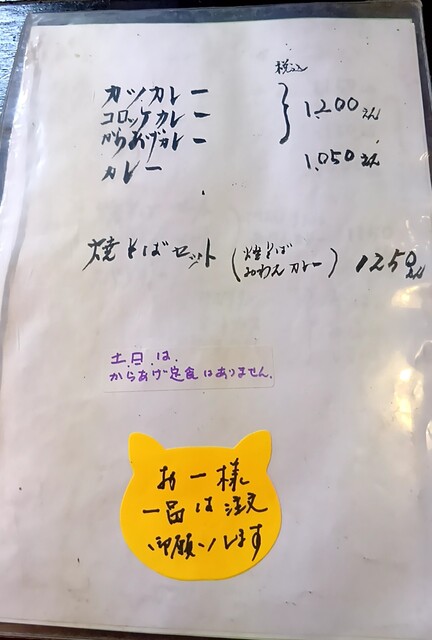 税込
カツカレー
コロッケカレー
からあげカレー
1,200えん
カレー 1,050えん
焼そばセット (焼そば みわんカレー) 1250えん
土.日.は.
からあげ定食はありません.
お一様
一品は注文
御願いします